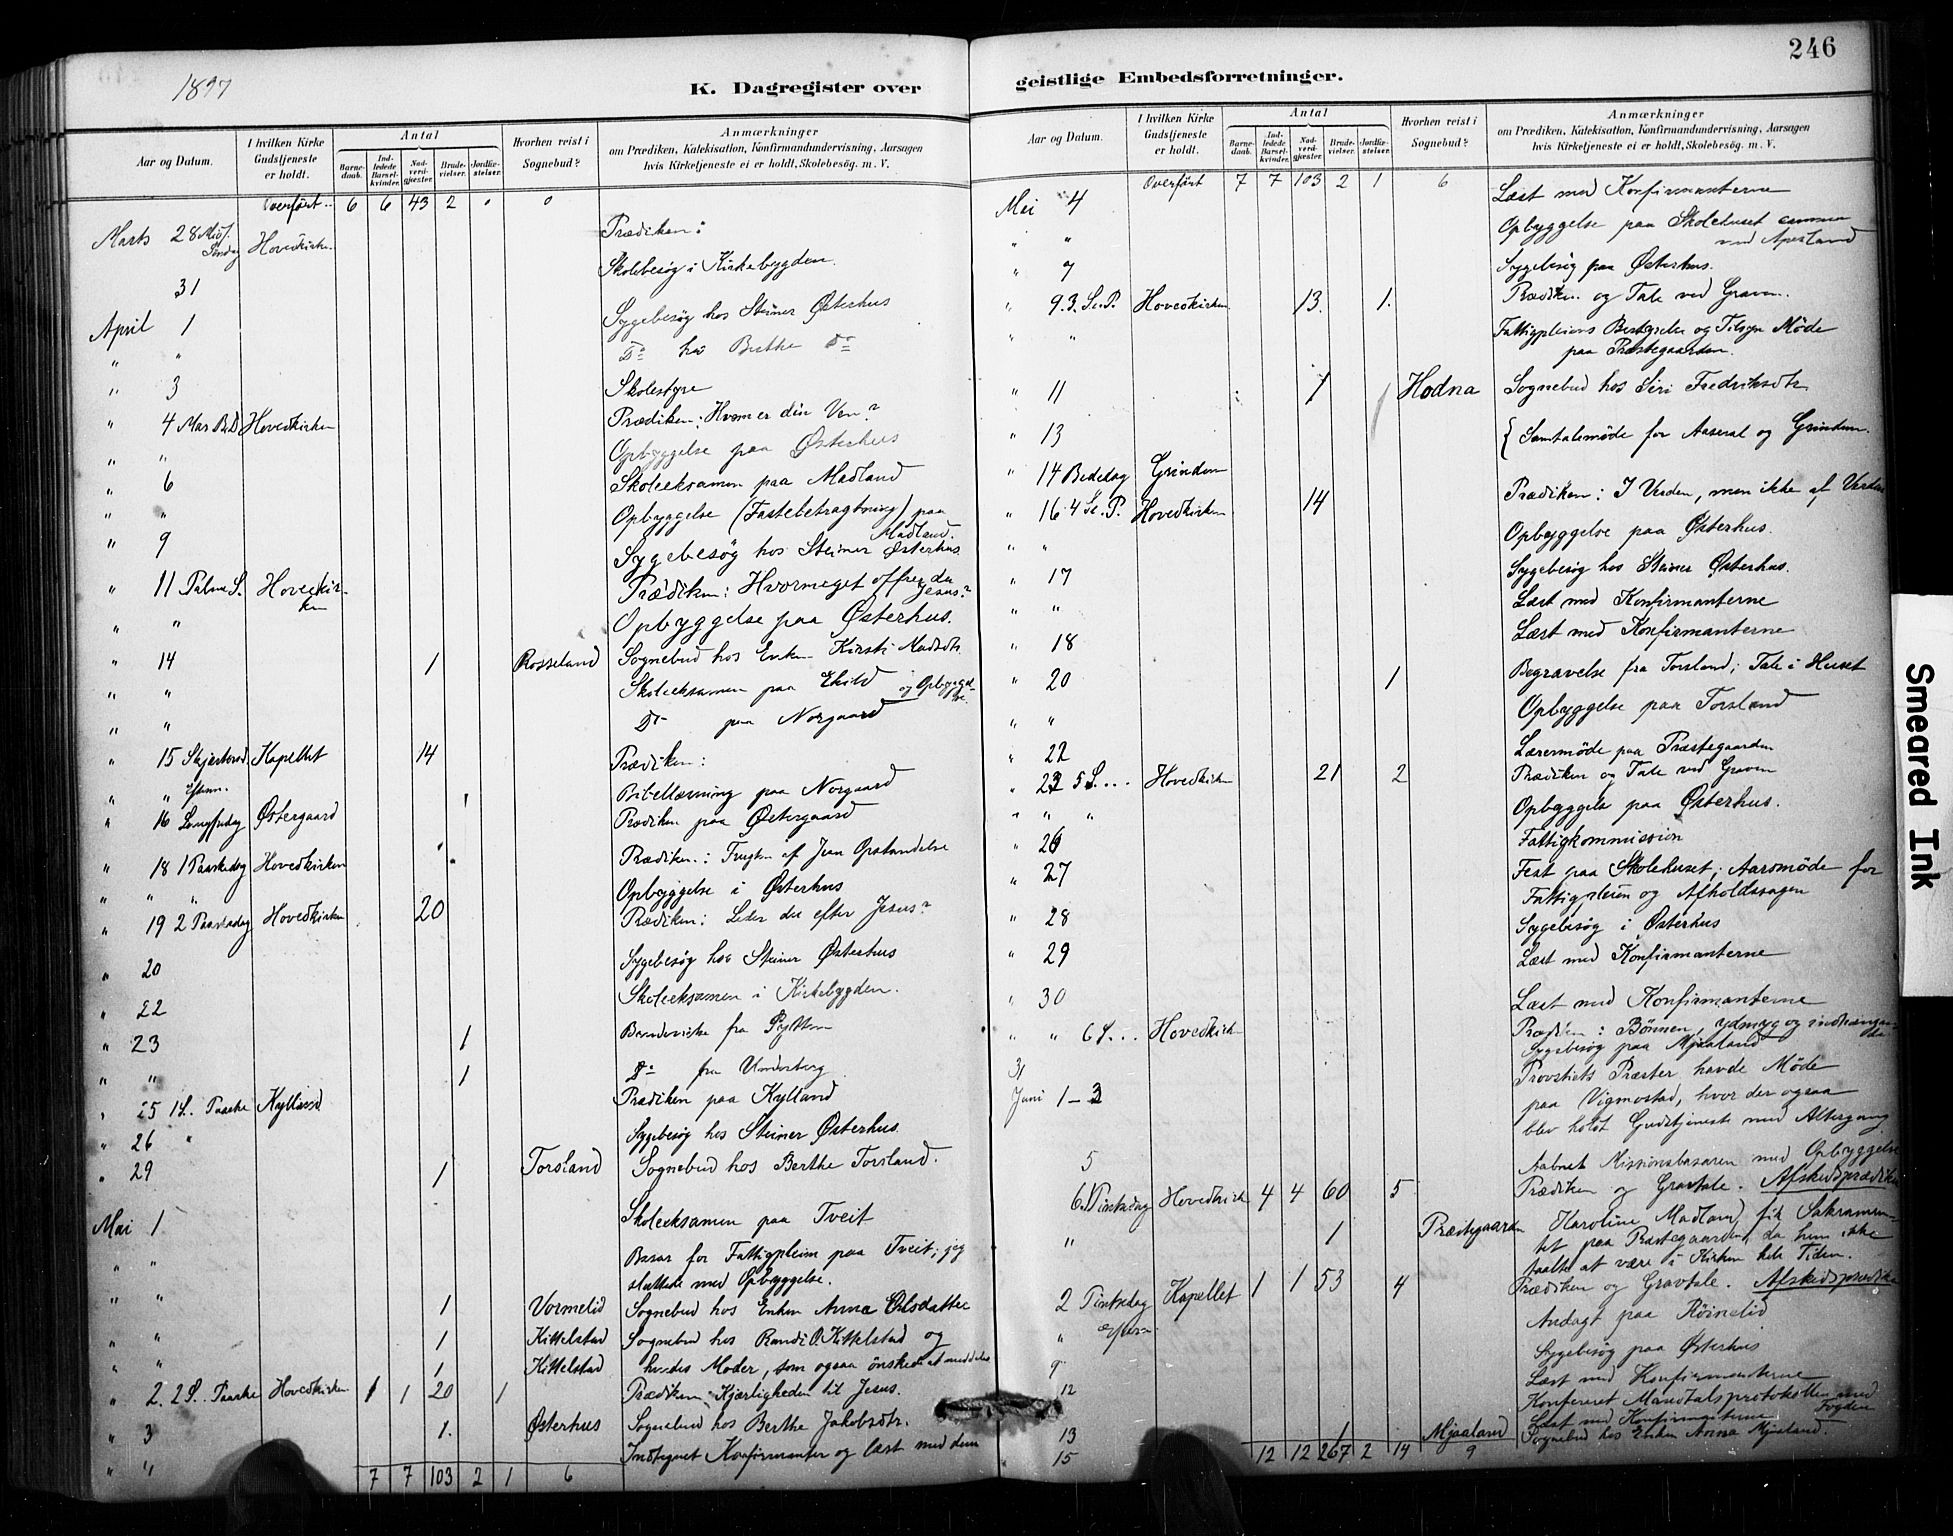 246
1897
K. Dagregister over
geistlige Embedsforretninger.
Aar og Datum.
I hvilken Kirke Gudstjeneste er holdt.
Antal
Barnedaab.
Indledede Barselkvinder.
Nadverdgjæster.
Brudevielser.
Jordfæstelser.
Hvorhen reist i Sognebud?
Anmærkninger
om Prædiken, Katekisation, Konfirmandundervisning, Aarsagen
hvis Kirketjeneste ei er holdt, Skolebesøg. m. V.
Overført 6 6 43 2 0 0
Marts 28 Mid f. Søndag Hovedkirken Prædiken:
31 Skolebesøg i Kirkebygden.
April 1 Sygebesøg hos Steiner Østerhus
" " Do hos Berthe Do
" 3 Skolestyre
" 4 Mar. B.D Hovedkirken Prædiken: Hvem er din Ven?
" " Opbyggelse paa Østerhus
" 6 Skoleeksamen paa Madland
" " Opbyggelse (Fastebetragtning) paa Madland.
" 9 Sygebesøg hos Steiner Østerhus
" 11 Palme S. Hovedkirken Prædiken: Hvormeget offrer du Jesus?
" " Opbyggelse paa Østerhus.
" 14 1 Rosseland Sognebud hos Enken Kirsti Madsdtr.
" " Skoleeksamen paa Ekild og Opbyggelse.
" " Do paa Norgaard
" 15 Skjærtorsd. Kapellet 14 Prædiken:
" " Efterm. Bibellæsning paa Norgaard
" 16 Langfredag Østergaard Prædiken paa Østergaard
" 18 1 Paaskedag Hovedkirken Prædiken: Frugten af Jesu Opstandelse
" " " Opbyggelse i Østerhus
" 19 2 Paaskedag Hovedkirken 20 Prædiken: Leder du efter Jesus?
" 20 Sygebesøg hos Steiner Østerhus
" 22 Skoleeksamen i Kirkebygden.
" 23 1 Brudevielse fra
" " 1 Do fra Underberg
" 25 1 S. Paaske Kylland Prædiken paa Kylland
" 26 " Sygebesøg hos Steiner Østerhus.
" 29 1 Torsland Sognebud hos Berthe Torsland.
Mai 1 Skoleeksamen paa Tveit
" " Basar for Fattigpleien paa Tveit; jeg
sluttede med Opbyggelse.
" " 1 Vormelid Sognebud hos Enken Anna Olsdatter
" " 1 Kittelstad Sognebud hos Randi O. Kittelstad og
" " 1 Kittelstad hendes Moder, som ogsaa ønskede at meddeles
" 2. 2 S. Paaske Hovedkirken 1 1 20 1 Prædiken: Kjærligheden til Jesus.
" 3 1. Østerhus Sognebud hos Berthe Jakobsdtr.
" " Indtegnet Konfirmanter og læst med dem
7 7 103 2 1 6
Aar og Datum.
I hvilken Kirke Gudstjeneste er holdt.
Antal
Barnedaab.
Indledede Barselkvinder.
Nadverdgjæster.
Brudevielser.
Jordfæstelser.
Hvorhen reist i Sognebud?
Anmærkninger
om Prædiken, Katekisation, Konfirmandundervisning, Aarsagen
hvis Kirketjeneste ei er holdt, Skolebesøg. m. V.
Overført 7 7 103 2 1 6
Mai 4 Læst med Konfirmanterne
" " Opbyggelse paa Skolehuset sammen
med Apesland
" 7 Sygebesøg paa Østerhus.
" 9. 3. S.e.P. Hovedkirken 13. 1. Prædiken og Tale ved Graven.
" " Fattigpleiens Bestyrelse og Tilsyn Møde
paa Præstegaarden.
" 11 1 Hodna Sognebud hos Siri Fredriksdtr.
" 13 Samtalemøde for Aaseral og Grinden.
" 14 Bededag Grinden
" 16. 4 S.e.P. Hovedkirken 14 Prædiken: I Verden, men ikke af Verden
" " Opbyggelse paa Østerhus.
" 17 Sygebesøg hos Steiner Østerhus.
" " Læst med Konfirmanterne
" 18 Læst med Konfirmanterne
" 20 1 Begravelse fra Torsland; Tale i Huset
" " Opbyggelse paa Torsland
" 22 Lærermøde paa Præstegaarden
" 23 5 S. ... Hovedkirken 21 2 Prædiken og Tale ved Graven
" " " Opbyggelse paa Østerhus.
" 26 Fattigkommission
" 27 Fest paa Skolehuset; Aarsmøde for
Fattigpleien og Afholdssagen
" 28 Sygebesøg i Østerhus
" 29 Læst med Konfirmanterne
" 30 Læst med Konfirmanterne
" " 6 S... Hovedkirk Prædiken: Bønnen, ydmyg og indtrængende
31 Sygebesøg paa Mjaaland
Juni 1-3 Provstiets Præster havde Møde
paa Vigmostad, hvor der ogsaa
blev holdt Gudstjeneste med Altergang
5 Aabnet Missionsbasaren med Opbyggelse
6. 1 Pintsedag Hovedkirk 4 4 60 5 Prædiken og Gravtale. Afskedsprædiken
" 1 Præstegaarden Karoline Madland fik Sakramen-
tet paa Præstegaarden, da hun ikke
taalte at være i Kirken hele Tiden.
2 Pintsedag Kapellet 1 1 53 4 Prædiken og Gravtale. Afskedsprædiken
" Efterm. Andagt paa Røinelid
9 Sygebesøg paa Østerhus
12 Læst med Konfirmanterne
Konfereret Mandtalsprotokollen med Fogden
13 Læst med Konfirmanterne
15 1 Mjaaland Sognebud hos Enken Anna Mjaaland.
12 12 267 2 14 9
Smeared Ink